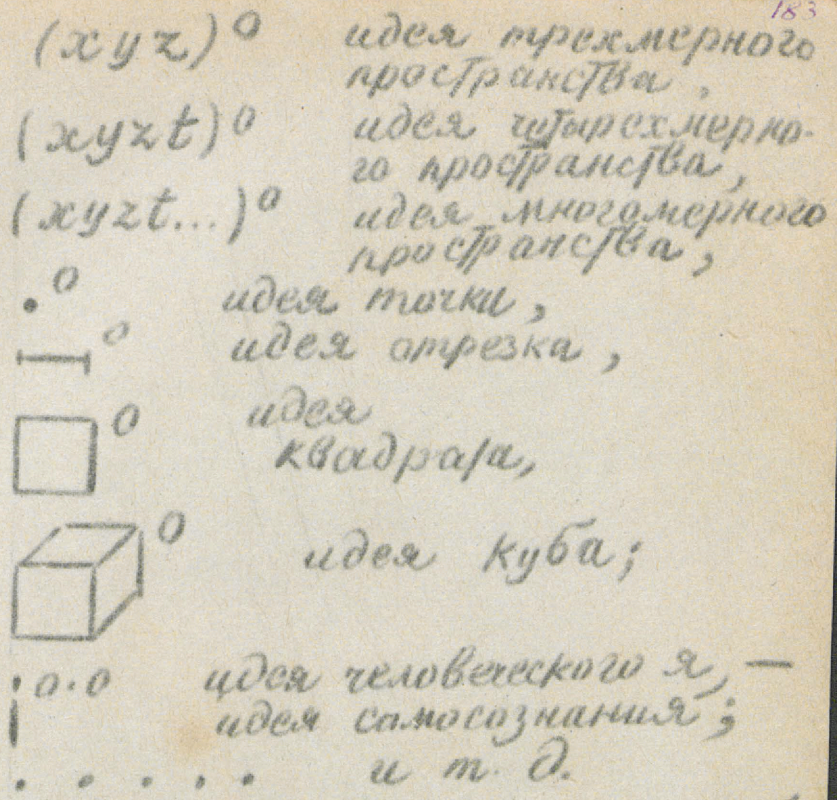 183
(xyz)⁰ идея трехмерного
пространства,
(xyzt)⁰ идея четырехмерно-
го пространства,
(xyzt...)⁰ идея многомерного
пространства,
•⁰ идея точки,
⁰ идея отрезка,
⁰ идея
квадрата,
⁰ идея куба;
0·0 идея человеческого я, —
идея самосознания;
. . . . . и т. д.